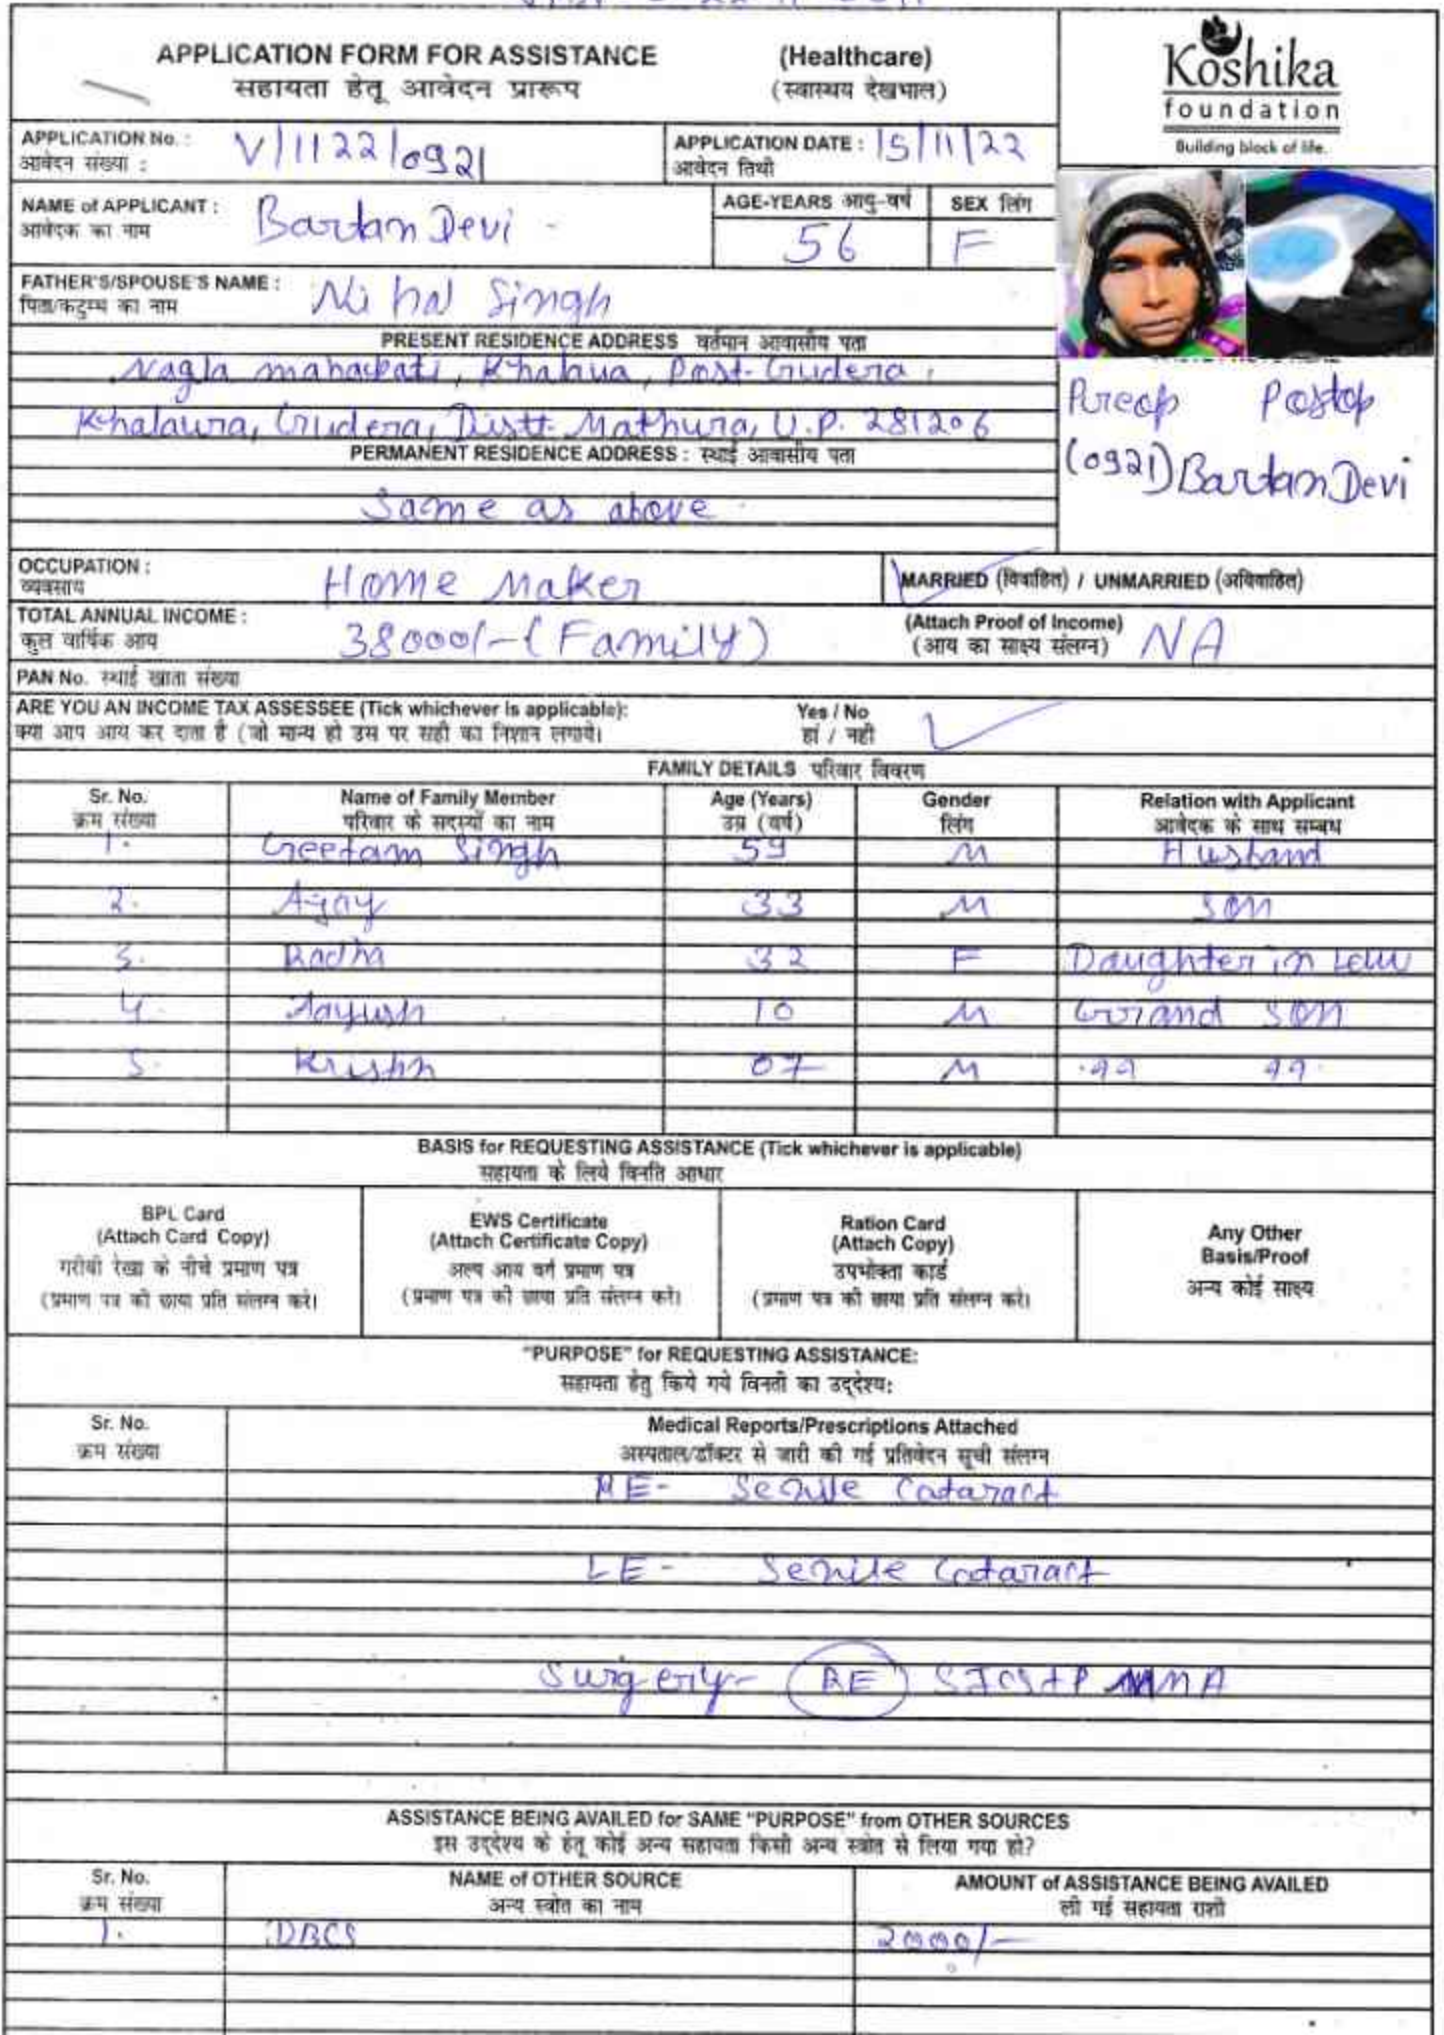 APPLICATION FORM FOR ASSISTANCE (Healthcare)
सहायता हेतू आवेदन प्रारूप (स्वास्थय देखभाल)
Koshika
foundation
Building block of life.
APPLICATION No. : V/1122/0921 APPLICATION DATE : 15/11/22
आवेदन संख्या : आवेदन तिथी
NAME of APPLICANT : Bartan Devi - AGE-YEARS आयु-वर्ष SEX लिंग
आवेदक का नाम 56 F
FATHER'S/SPOUSE'S NAME : Ni hal Singh
पिता/कटुम्ब का नाम
PRESENT RESIDENCE ADDRESS वर्तमान आवासीय पता
Nagla Post- Gudera,
Khalaura, Gudera, Distt- Mathura, U.P. 281206
PERMANENT RESIDENCE ADDRESS : स्थाई आवासीय पता
Same as above
Preop Postop
(0921) Bartan Devi
OCCUPATION : Home Maker MARRIED (विवाहित) / UNMARRIED (अविवाहित)
व्यवसाय
TOTAL ANNUAL INCOME : 38000/- (Family) (Attach Proof of Income) NA
कुल वार्षिक आय (आय का साक्ष्य संलग्न)
PAN No. स्थाई खाता संख्या
ARE YOU AN INCOME TAX ASSESSEE (Tick whichever is applicable): Yes / No
क्या आप आय कर दाता है (जो मान्य हो उस पर सही का निशान लगाये। हां / नही
FAMILY DETAILS परिवार विवरण
Sr. No. Name of Family Member Age (Years) Gender Relation with Applicant
क्रम संख्या परिवार के सदस्यों का नाम उम्र (वर्ष) लिंग आवेदक के साथ सम्बध
1. Geetam Singh 59 M Husband
2. Ajay 33 M Son
3. Radha 32 F Daughter in Law
4. Aayush 10 M Grand Son
5. Krishn 07 M
BASIS for REQUESTING ASSISTANCE (Tick whichever is applicable)
सहायता के लिये विनति आधार
BPL Card
(Attach Card Copy)
गरीबी रेखा के नीचे प्रमाण पत्र
(प्रमाण पत्र की छाया प्रति संलग्न करे।
EWS Certificate
(Attach Certificate Copy)
अल्प आय वर्ग प्रमाण पत्र
(प्रमाण पत्र की छाया प्रति संलग्न करे।
Ration Card
(Attach Copy)
उपभोक्ता कार्ड
(प्रमाण पत्र की छाया प्रति संलग्न करे।
Any Other
Basis/Proof
अन्य कोई साक्ष्य
"PURPOSE" for REQUESTING ASSISTANCE:
सहायता हेतु किये गये विनती का उद्देश्य:
Sr. No. Medical Reports/Prescriptions Attached
क्रम संख्या अस्पताल/डॉक्टर से जारी की गई प्रतिवेदन सूची संलग्न
RE- Senile Cataract
LE- Senile Cataract
Surgery- RE SICS+P MMA
ASSISTANCE BEING AVAILED for SAME "PURPOSE" from OTHER SOURCES
इस उद्देश्य के हेतू कोई अन्य सहायता किसी अन्य स्त्रोत से लिया गया हो?
Sr. No. NAME of OTHER SOURCE AMOUNT of ASSISTANCE BEING AVAILED
क्रम संख्या अन्य स्त्रोत का नाम ली गई सहायता राशी
1. DBCS 2000/-